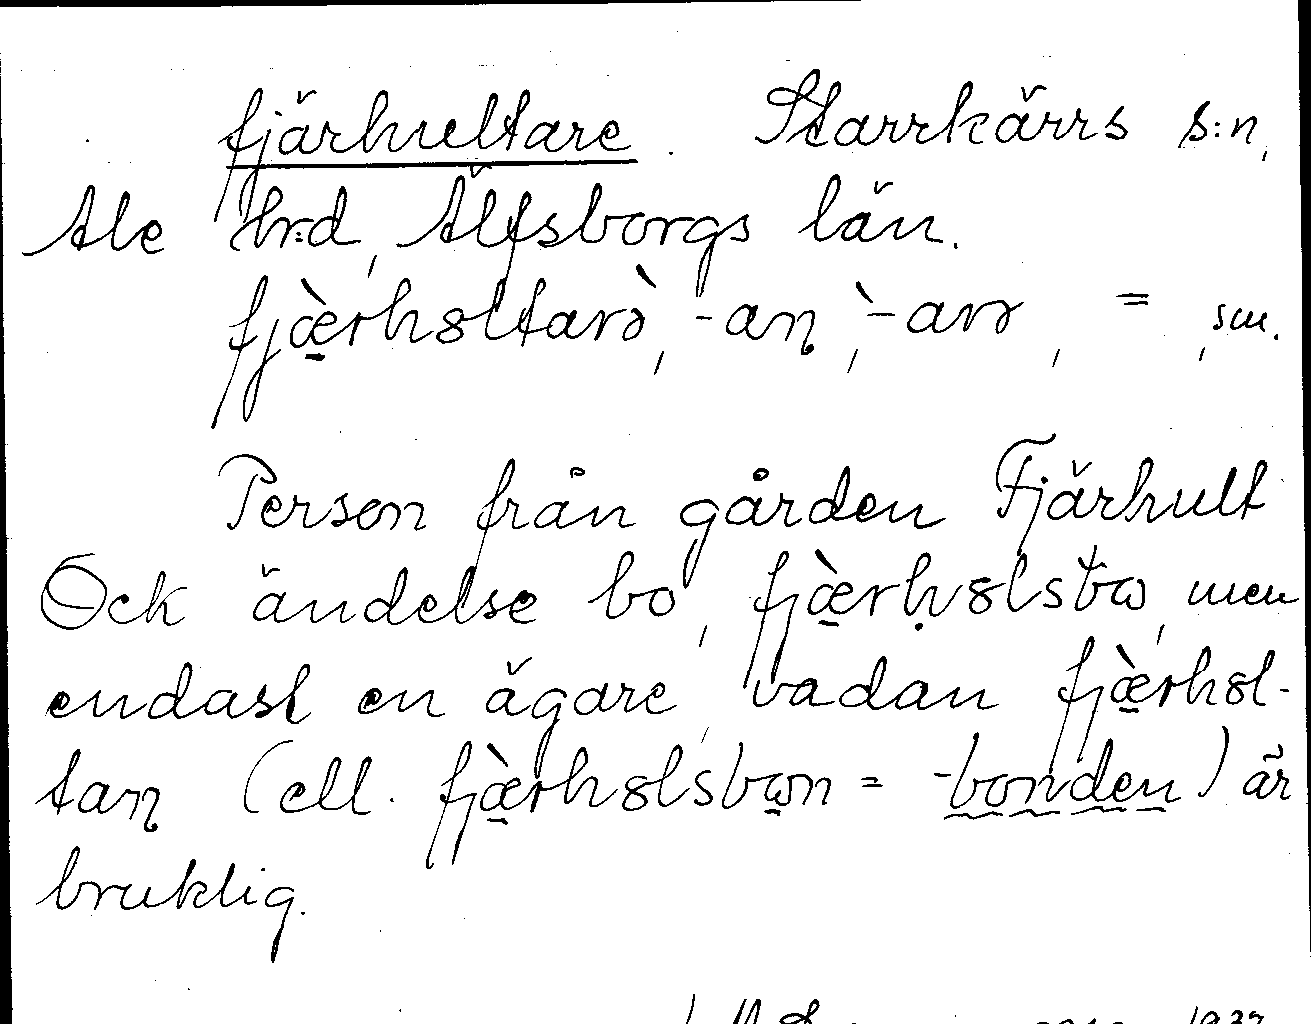 fjärhultare. Starrkärrs s:n,
Ale hrd, Älfsborgs län.
fjæ̀rhȣltarə̀, -aɳ, -̀arə, =, sm.
Person från gården Fjärhult
Ock ändelse bo, fjæ̀rhȣlsbɷ, men
endast en ägare, vadan fjæ̀rhȣl-
taɳ (ell. fjæ̀rhȣlsbɷn = -bonden) är
bruklig.
1937